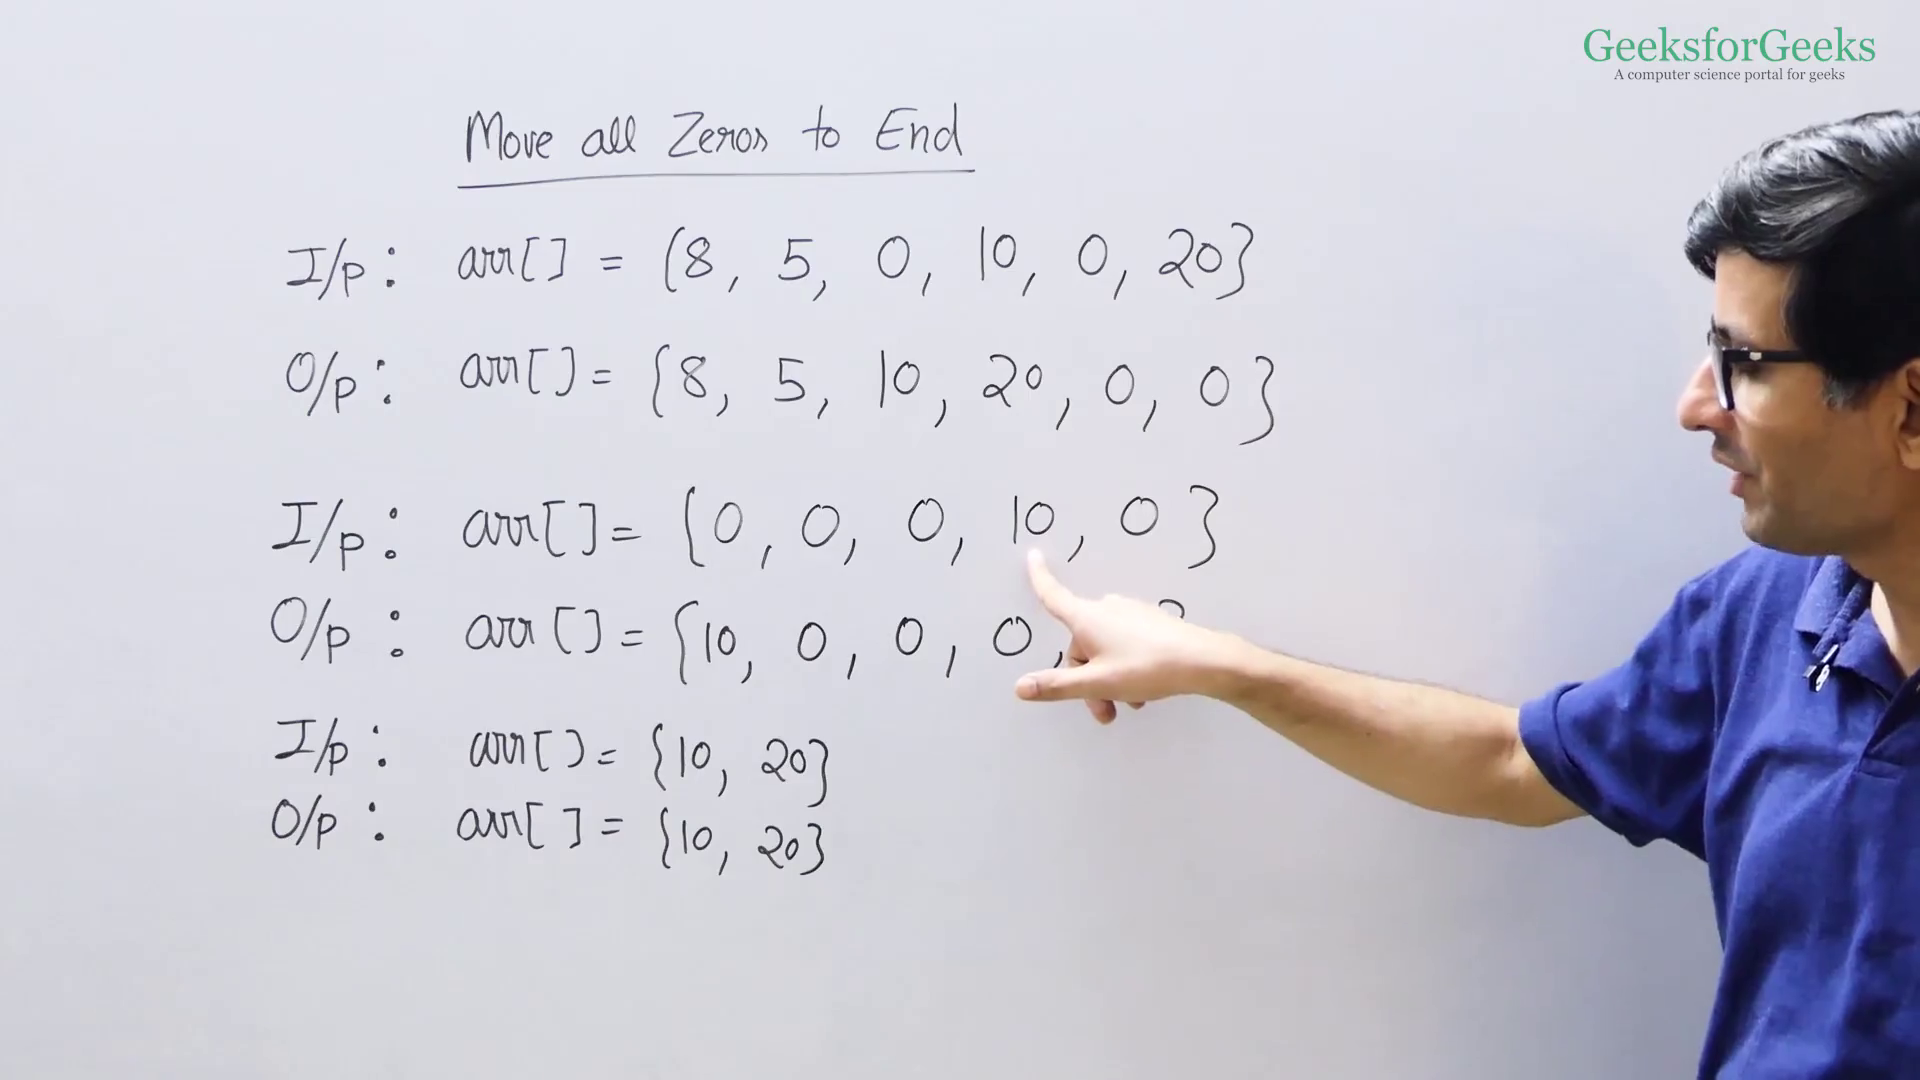 GeeksforGeeks
A computer science portal for geeks
Move all Zeros to End
I/p : arr[] = (8, 5, 0, 10, 0, 20}
O/p : arr[] = {8, 5, 10, 20, 0, 0}
I/p : arr[] = {0, 0, 0, 10, 0}
O/p : arr[] = {10, 0, 0, 0,
I/p : arr[] = {10, 20}
O/p : arr[] = {10, 20}